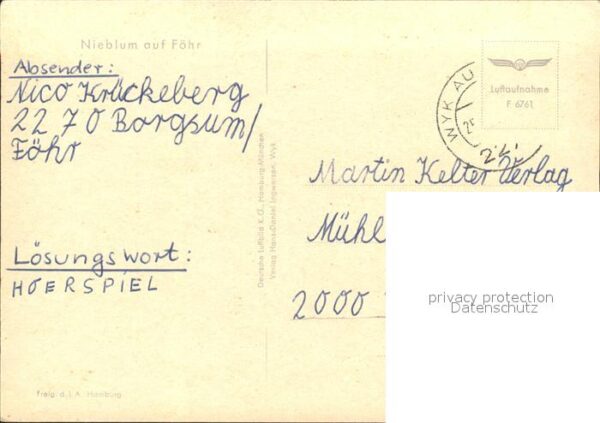 Nieblum auf Föhr
Absender:
Nico Krückeberg
22 70 Borgsum/
Föhr
Lösungswort:
HOERSPIEL
Freig. d. L.A. Hamburg
Deutsche Luftbild K.G., Hamburg-München
Verlag Hans-Daniel Ingwersen, Wyk
WYK AU
Luftaufnahme
F 6761
Martin Kelter Verlag
Mühl
2000
privacy protection
Datenschutz